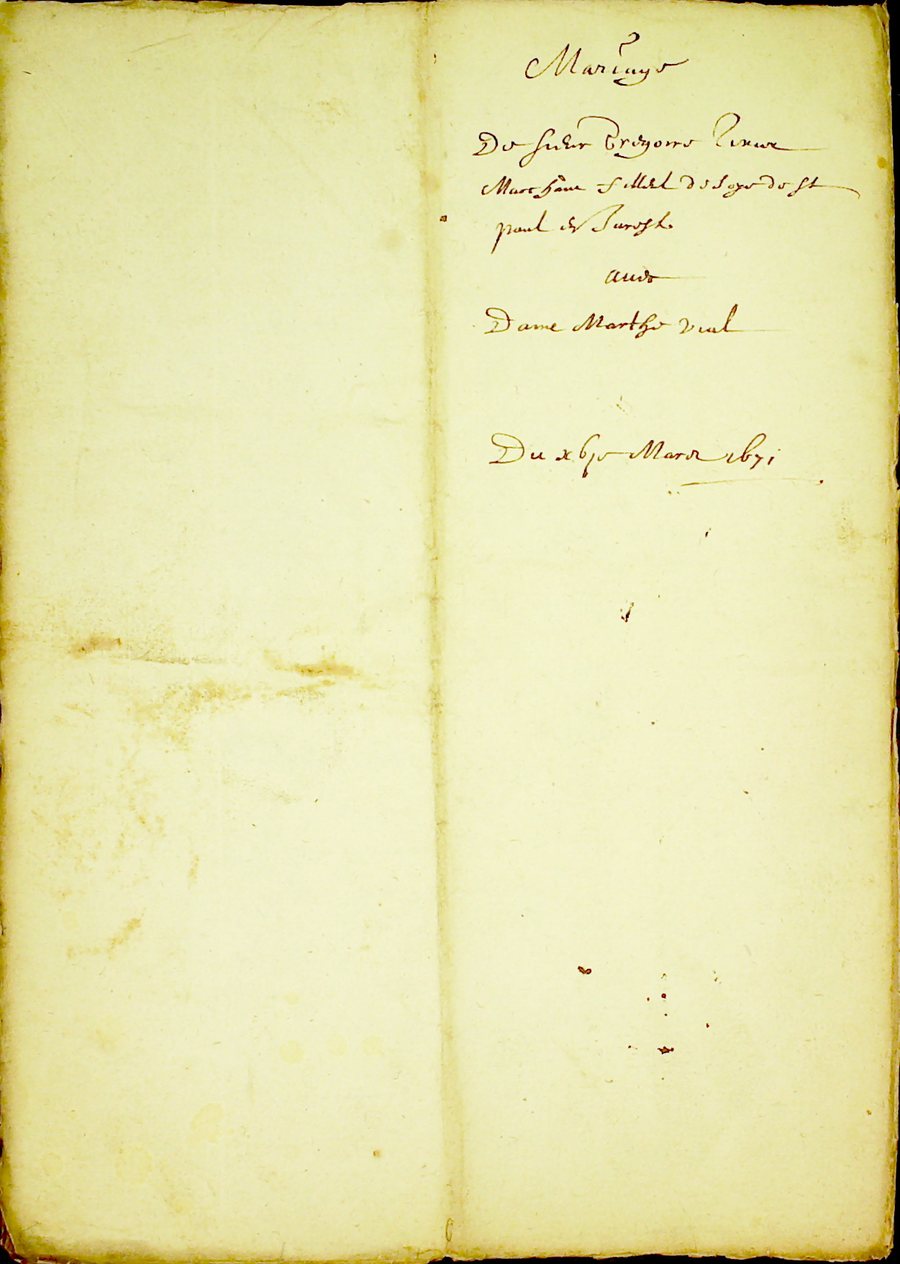 Mariage
De sieur Gregoire
Marchant de soye de St
paul en Jarest
avec
Dame Marthe Vial
Du Mars 1671